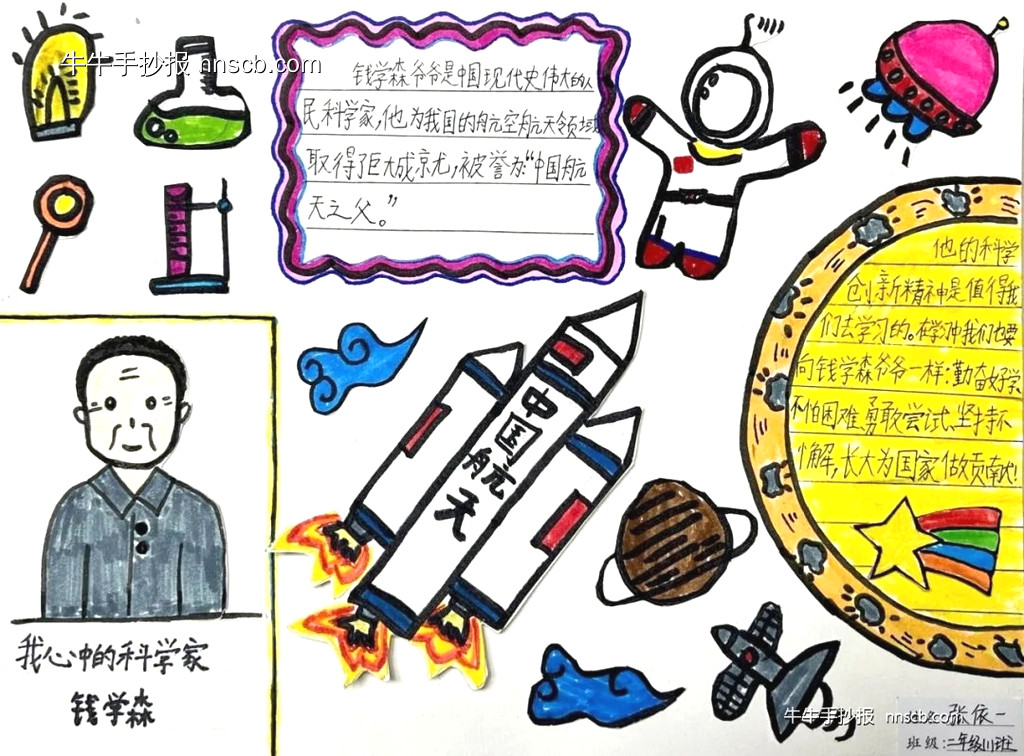 牛牛手抄报 nnscb.com
钱学森爷爷是中国现代史伟大的人
民科学家,他为我国的航空航天领域
取得了巨大成京尤,被誉为:“中国航
天之父。”
他的科学
创新精神是值得我
们去学习的。在学习中我们也要
向钱学森爷爷一样:勤奋好学
不怕困难、勇敢尝试、坚持不
懈,长大为国家做贡献!
中国航天
我心中的科学家
钱学森
姓名:张依一
班级:二年级111班
牛牛手抄报 nnscb.com